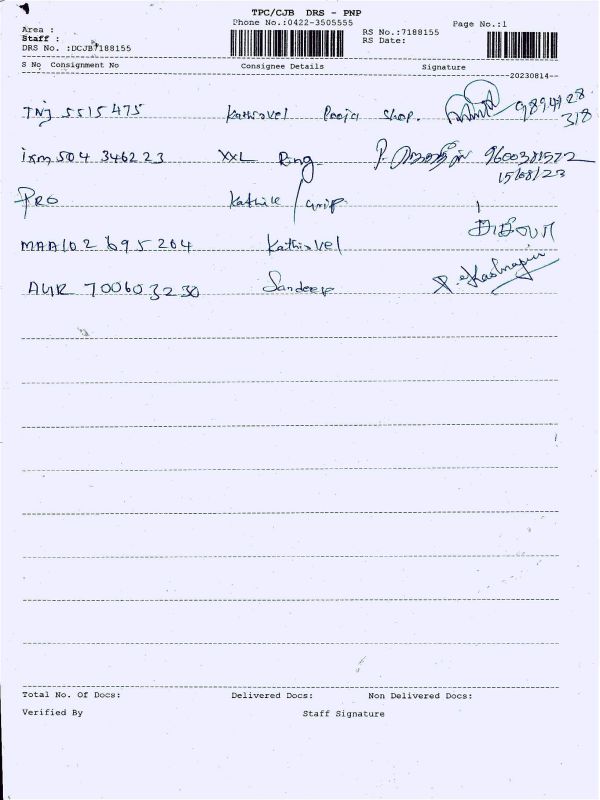 TPC/CJB DRS - PNP
Phone No.:0422-3505555
Page No.:1
Area :
Staff :
DRS No. :DCJB7188155
RS No.:7188155
RS Date:
S No Consignment No Consignee Details Signature
--20230814--
TNJ 5515475 Kathirvel Pooja Shop. 9894128
318
504 346223 XXL Ring 9600381572
15/08/23
PRO
MAA102695204 Kathirvel
700603230 Sandeep
Total No. Of Docs: Delivered Docs: Non Delivered Docs:
Verified By Staff Signature